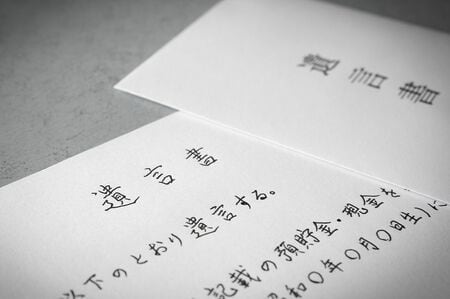 遺言書
遺言書
以下のとおり遺言する。
記載の預貯金・現金を
和〇年〇月〇日生)に